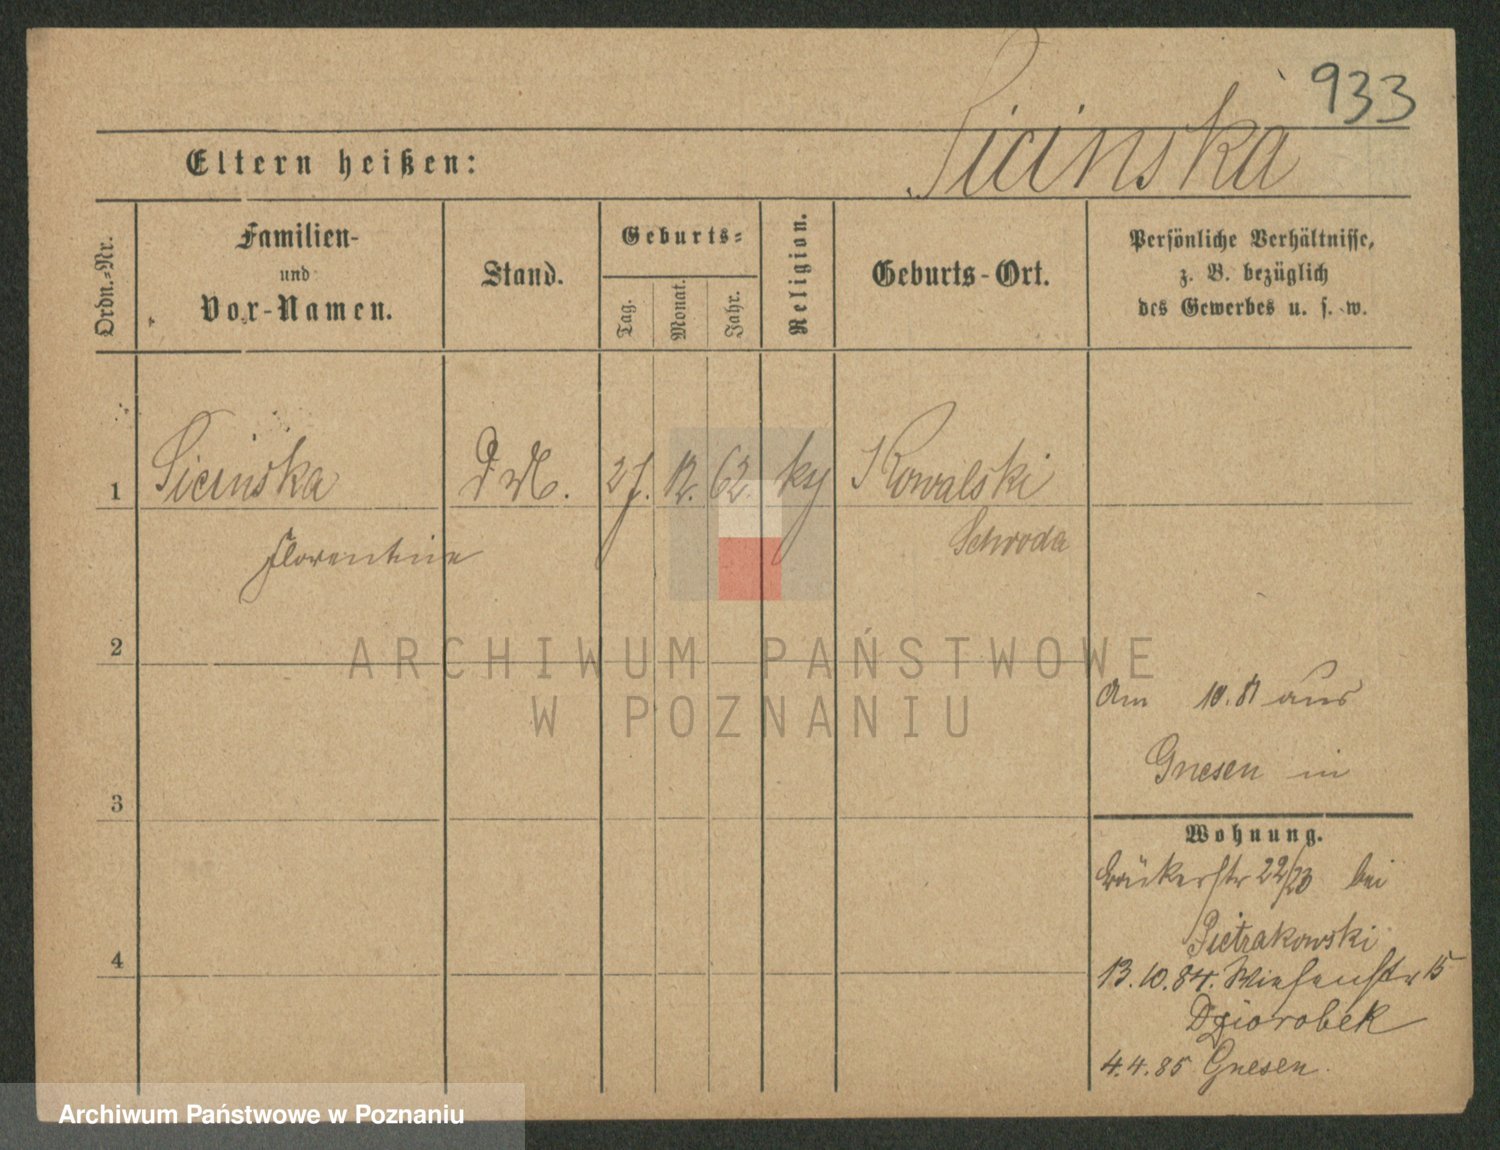 933
Sicinska
Eltern heißen:
Ordn.-Nr.
Familien-
und
Vor-Namen.
Stand.
Geburts-
Tag.
Monat.
Jahr.
Religion.
Geburts-Ort.
Persönliche Verhältnisse,
z. B. bezüglich
des Gewerbes u. s. w.
1 Sicinska D M. 27. 12. 62. Kowalski
Florentine Schroda
2
3
4
Am 10. 81 aus
Gnesen in
Wohnung.
22/23 bei
Pietrakowski
13.10.84. Wiesenstr 15
Dziorobek
4.4.85 Gnesen.
ARCHIWUM PAŃSTWOWE
W POZNANIU
Archiwum Państwowe w Poznaniu